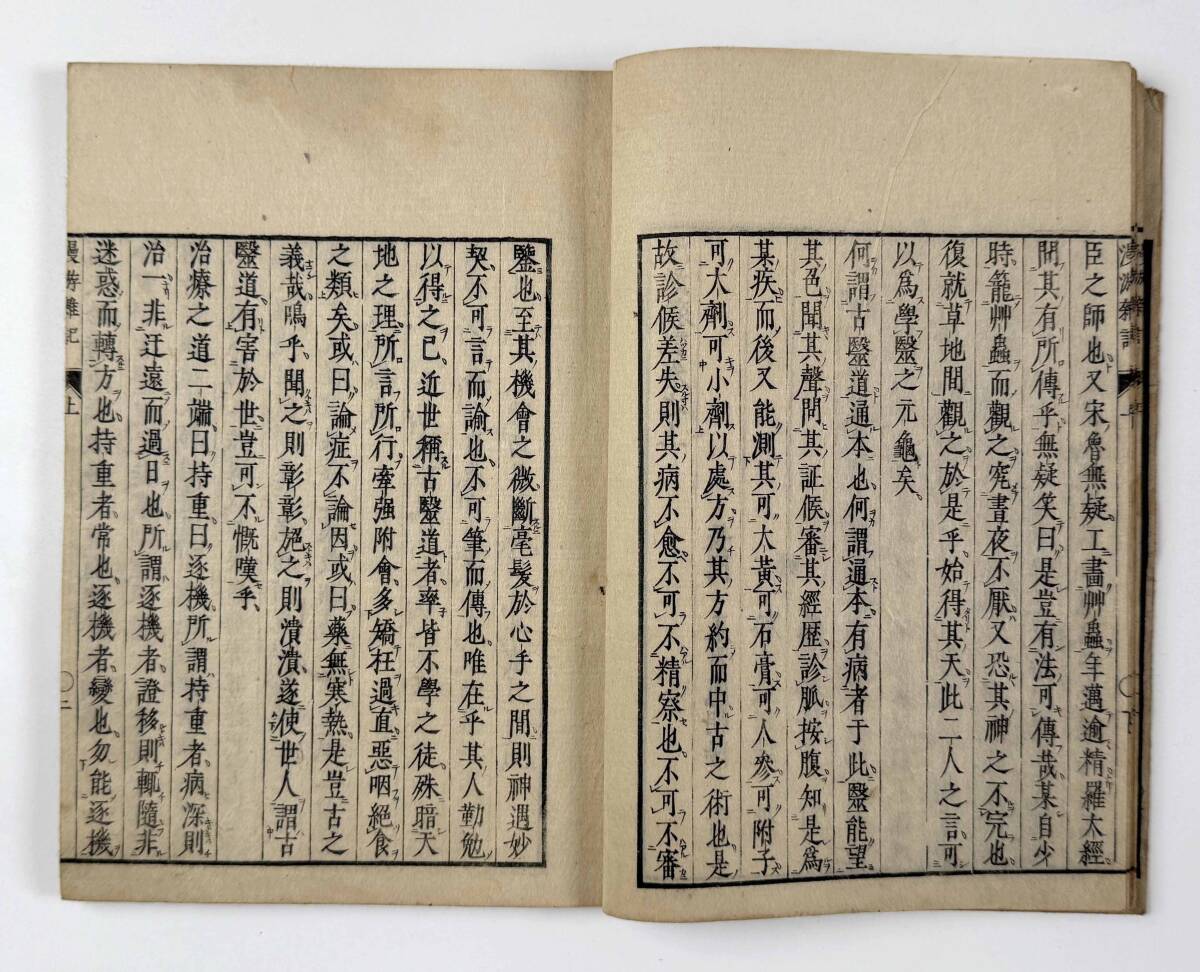 臣之師也又宋魯無疑工畫艸蟲年邁逾精羅大經
問其有所傳乎無疑笑曰是豈有法可傳哉某自少
時籠艸蟲而觀之窮晝夜不厭又恐其神之不完也
復就草地間觀之於是乎始得其天此二人之言可
以爲學醫之元龜矣
何謂古醫道通本也何謂通本有病者于此醫能望
其色聞其聲問其証候審其經歷診脈按腹知是爲
某疾而後又能測其可大黃可石膏可人參可附子
可大劑可小劑以處方乃其方約而中古之術也是
故診候差失則其病不愈不可不精察也不可不審
鑒也至其機會之微斷毫髮於心手之間則神遇妙
契不可言而諭也不可筆而傳也唯在乎其人勤勉
以得之已近世稱古醫道者率皆不學之徒殊暗天
地之理所言所行牽强附會多矯枉過直惡咽絕食
之類矣或曰論症不論因或曰藥無寒熱是豈古之
義哉嗚乎聞之則彰彰施之則潰潰遂使世人謂古
醫道有害於世豈可不慨嘆乎
治療之道二端曰持重曰逐機所謂持重者病深則
治一非迂遠而過日也所謂逐機者證移則輒隨非
迷惑而轉方也持重者常也逐機者變也勿能逐機
漫游雜記 上 〇二